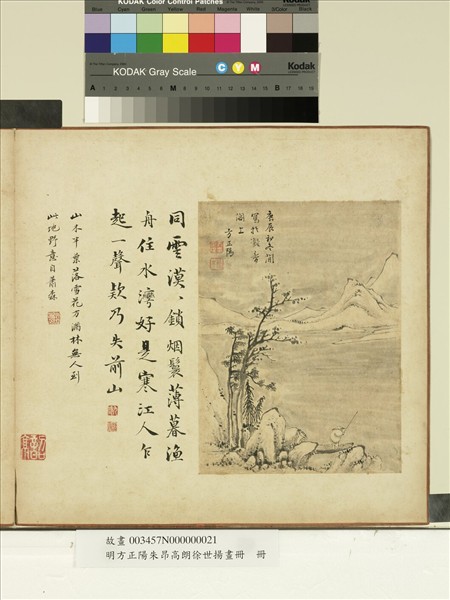 KODAK Color Control Patches
Blue Cyan Green Yellow Red Magenta White 3/Color Black
KODAK Gray Scale
C Y M
Kodak
A 1 2 3 4 5 6 M 8 9 10 11 12 13 14 15 B 17 18 19
庚辰初冬閒
寫於
湖上
方正陽
同雲漠、鎖烟鬟薄暮漁
舟住水灣好是寒江人乍
起一聲欸乃失前山
山木半黃落雪花方滿林無人到
此地野意自蕭森
故畫 003457N000000021
明方正陽朱昂高朗徐世揚畫冊 冊